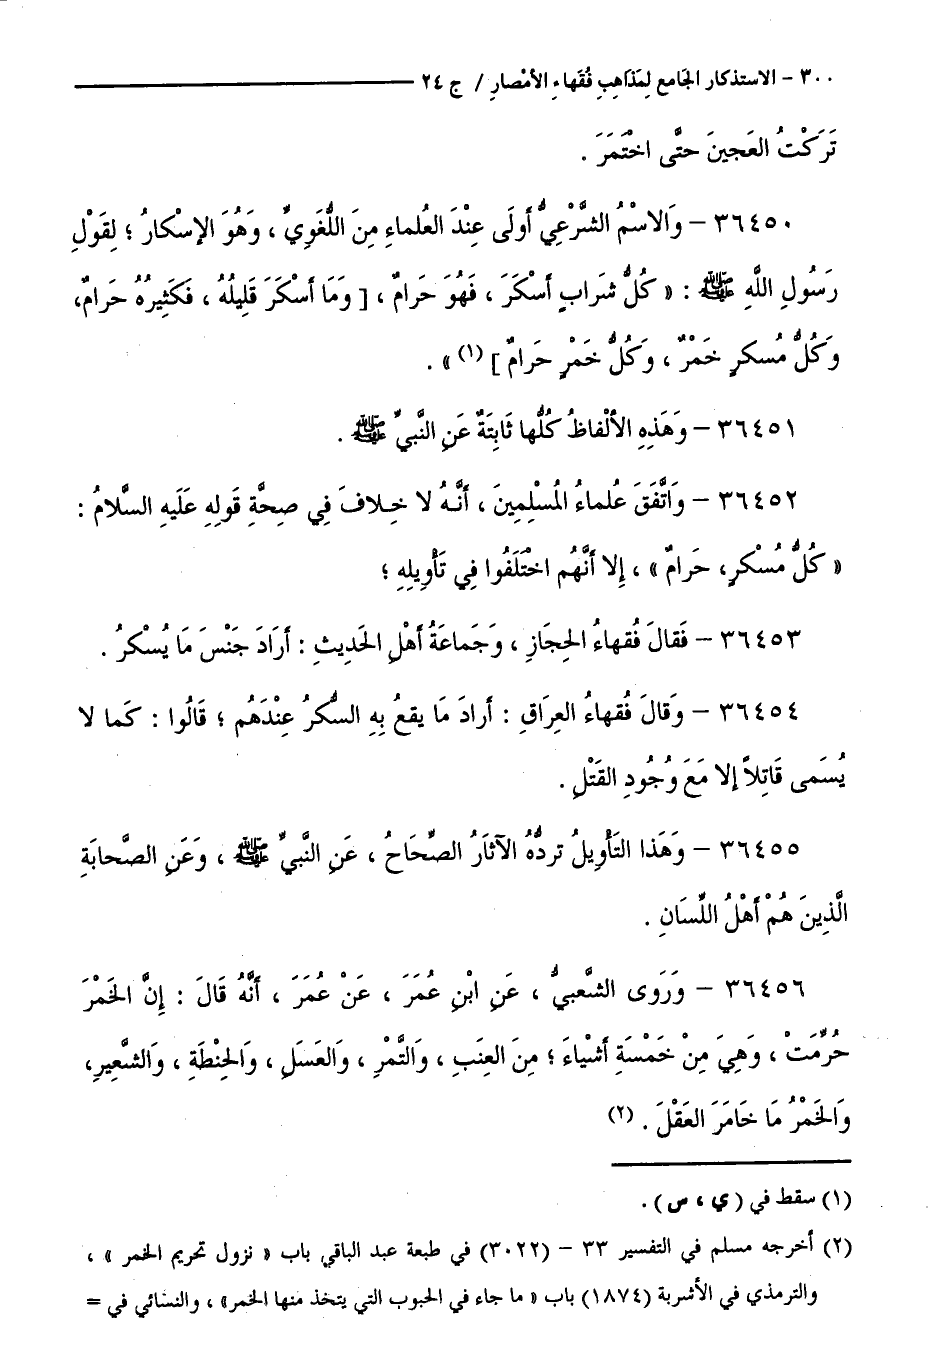 ٣٠٠ – الاستذكار الجامع لِمَذَاهِبِ فُقَهاءِ الأمْصارِ / ج ٢٤
تَرَكْتُ العَجينَ حتَّى اخْتَمَرَ .
٣٦٤٥٠ – وَالاسْمُ الشَّرْعِيُّ أَولَى عِنْدَ العُلماءِ مِنَ اللُّغَوِيِّ ، وَهُوَ الإسْكارُ ؛ لِقَوْلِ
رَسُولِ اللَّهِ ﷺ : « كُلُّ شَرابٍ أسْكَرَ ، فَهُوَ حَرامٌ ، [ وَمَا أسْكَرَ قَلِيلُهُ ، فَكَثِيرُهُ حَرامٌ،
وَكُلُّ مُسكرٍ خَمْرٌ ، وَكُلُّ خَمْرٍ حَرامٌ ] (١) » .
٣٦٤٥١ – وَهَذِهِ الألْفاظُ كُلُّها ثَابِتَةٌ عَنِ النَّبِيِّ ﷺ .
٣٦٤٥٢ – وَاتَّفَقَ عُلماءُ المُسْلِمِينَ ، أنَّهُ لا خِلافَ فِي صِحَّةِ قَولِهِ عَلَيهِ السَّلامُ :
« كُلُّ مُسْكرٍ، حَرامٌ » ، إلا أنَّهُم اخْتَلَفُوا فِي تَأْوِيلِهِ ؛
٣٦٤٥٣ – فَقالَ فُقهاءُ الحِجَازِ ، وَجَماعَةُ أهْلِ الحَدِيثِ : أرَادَ جَنْسَ مَا يُسْكرُ .
٣٦٤٥٤ – وَقالَ فُقهاءُ العِرَاقِ : أرادَ مَا يقعُ بِهِ السُّكرُ عِنْدَهُم ؛ قَالُوا : كَما لا
يُسَمى قَاتِلاً إلا مَعَ وُجُودِ القَتْلِ .
٣٦٤٥٥ – وَهَذا التَأْوِيلُ تردُّهُ الآثَارُ الصِّحَاحُ ، عَنِ النَّبِيِّ ﷺ ، وَعَنِ الصَّحابَةِ
الَّذِينَ هُمْ أهْلُ اللِّسَانِ .
٣٦٤٥٦ – وَرَوَى الشَّعبيُّ ، عَنِ ابْنِ عُمَرَ ، عَنْ عُمَرَ ، أنَّهُ قَالَ : إنَّ الخَمْرَ
حُرِّمَتْ ، وَهِيَ مِنْ خَمْسَةِ أشْيَاءَ ؛ مِنَ العِنَبِ ، وَالتَّمْرِ ، وَالعَسَلِ ، وَالحِنْطَةِ ، وَالشَّعِيرِ،
وَالخَمْرُ مَا خَامَرَ العَقْلَ . (٢)
(١) سقط في ( ي ، س ) .
(٢) أخرجه مسلم في التفسير ٣٣ – (٣٠٢٢) في طبعة عبد الباقي باب « نزول تحريم الخمر » ،
والترمذي في الأشربة (١٨٧٤) باب « ما جاء في الحبوب التي يتخذ منها الخمر» ، والنسائي في =